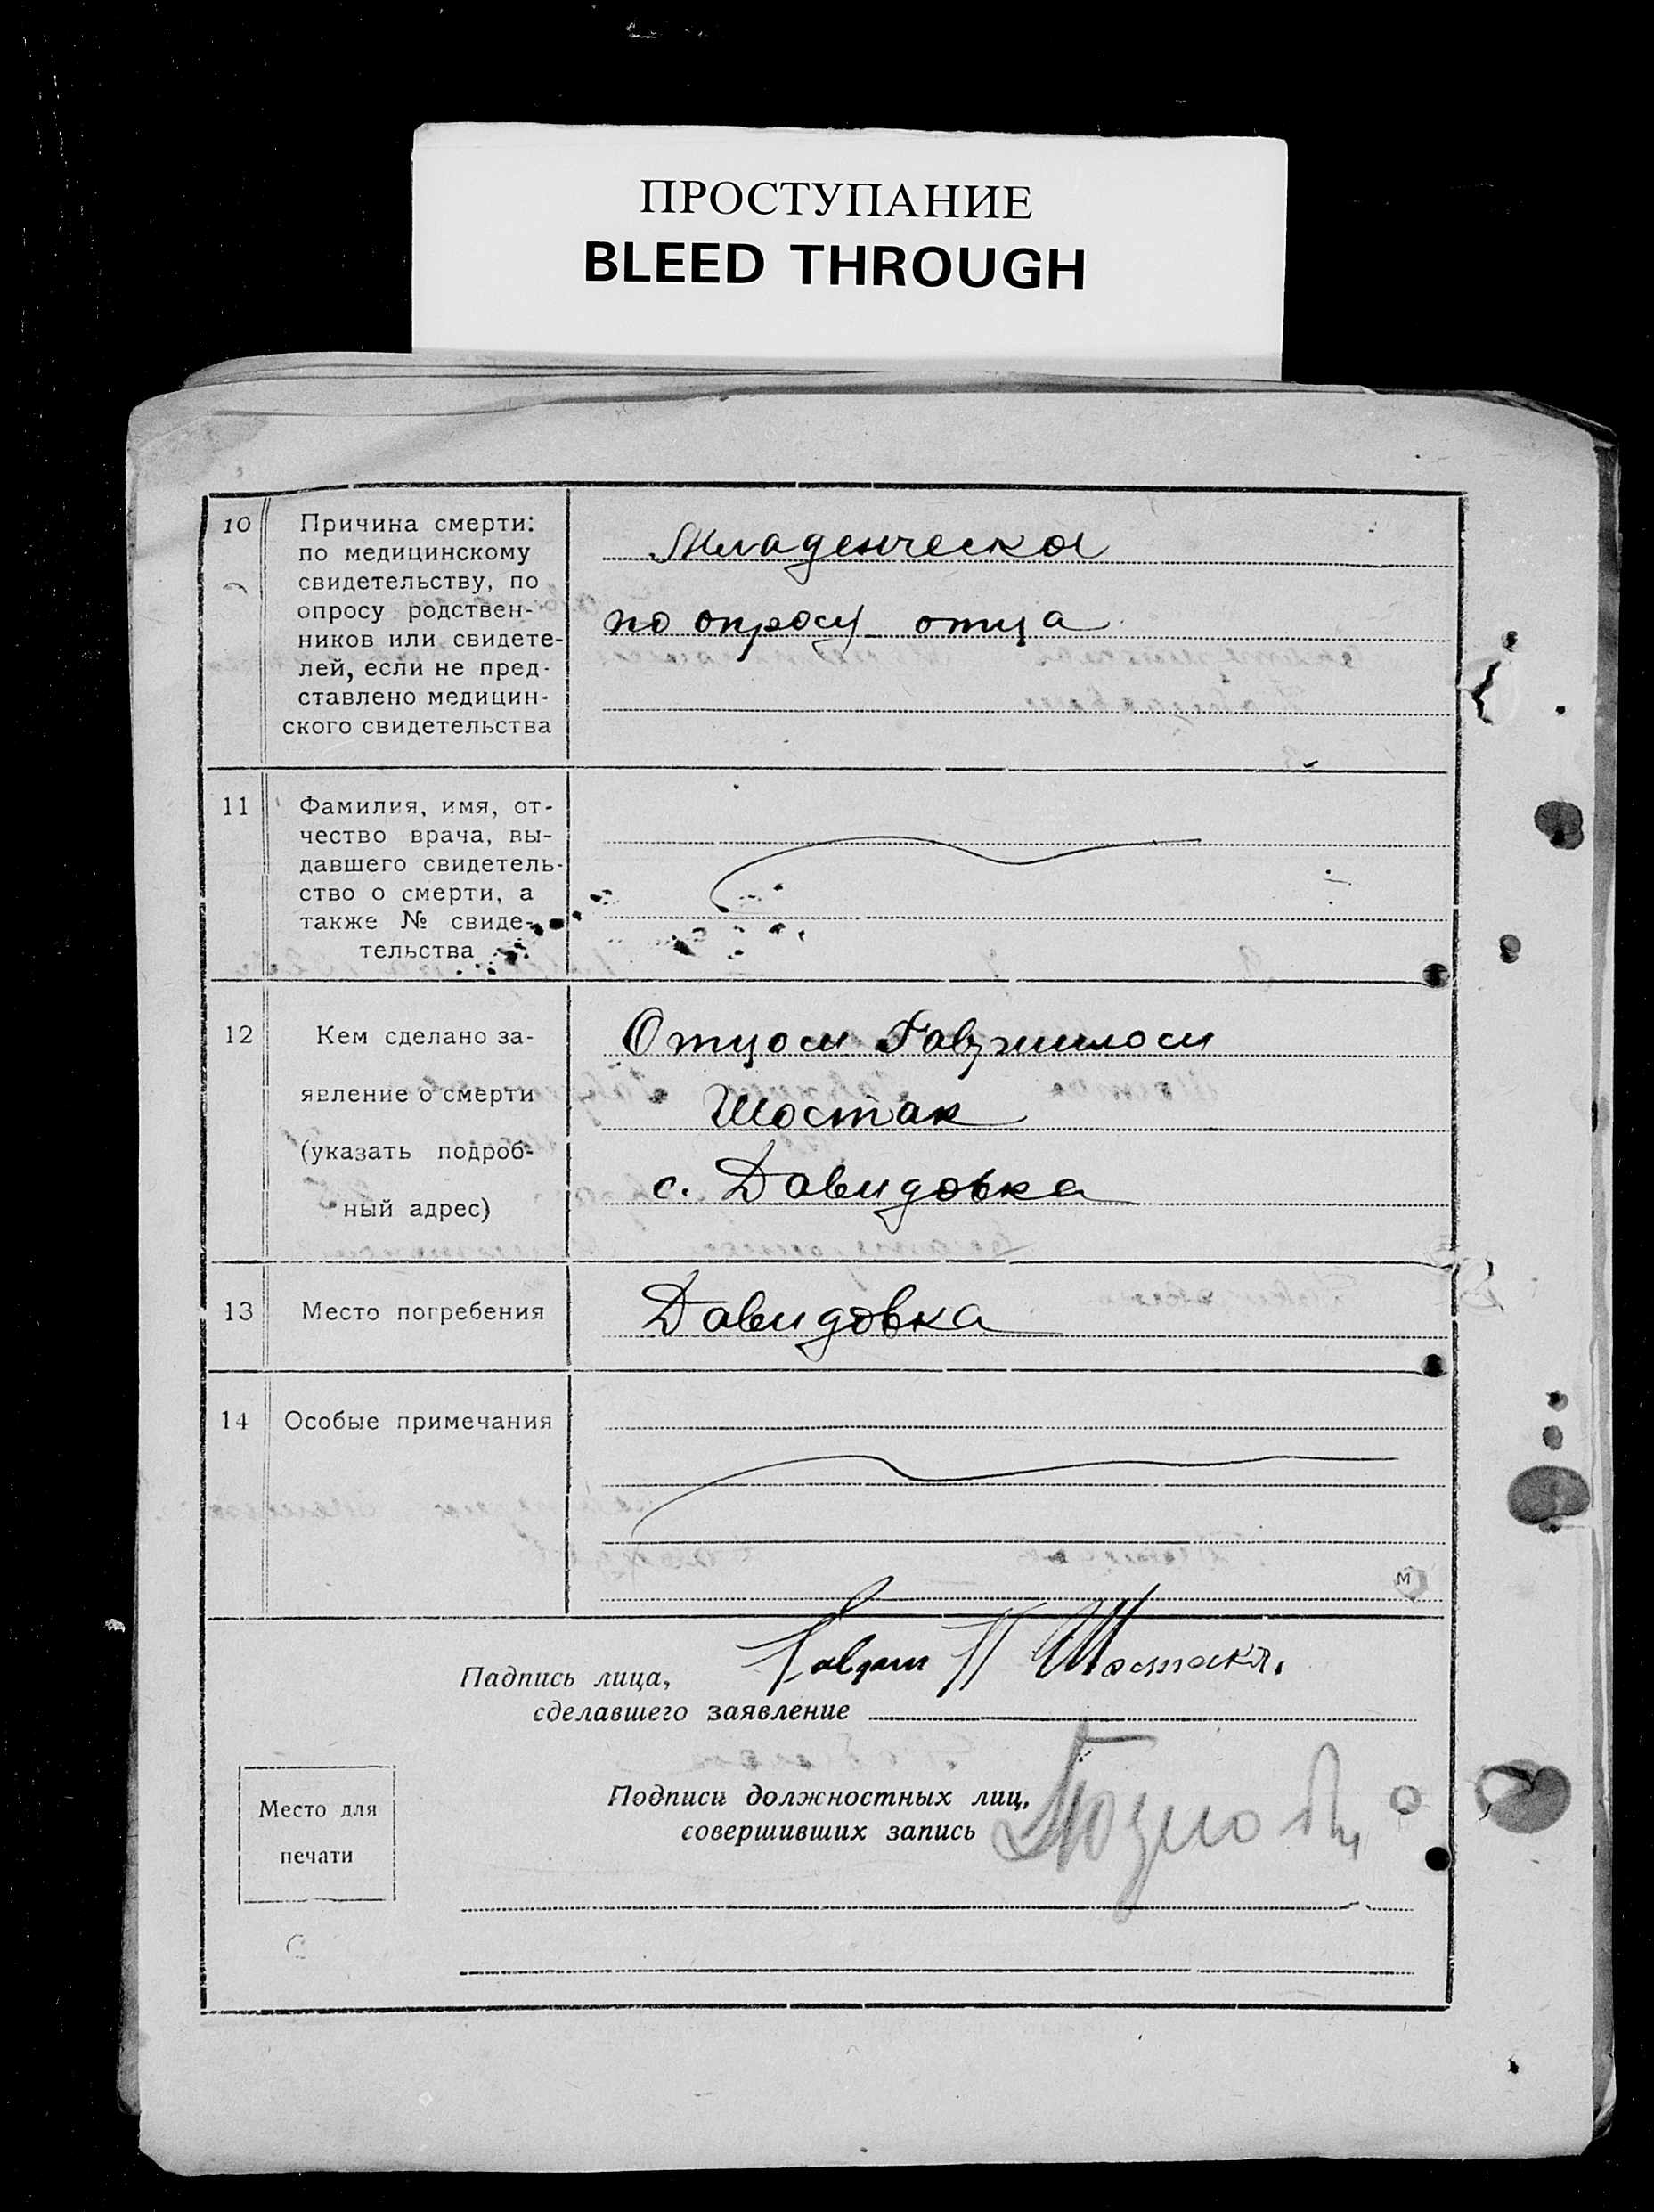 ПРОСТУПАНИЕ
BLEED THROUGH
10
Причина смерти:
по медицинскому
свидетельству, по
опросу родствен-
ников или свидете-
лей, если не пред-
ставлено медицин-
ского свидетельства
Младенческая
по опросу отца
11
Фамилия, имя, от-
чество врача, вы-
давшего свидетель-
ство о смерти, а
также № свиде-
тельства
12
Кем сделано за-
явление о смерти
(указать подроб-
ный адрес)
Отцом Гавриилом
Шостак
с. Давидовка
13
Место погребения
Давидовка
14
Особые примечания
М
Падпись лица,
сделавшего заявление
Шостак
Подписи должностных лиц,
совершивших запись
Место для
печати